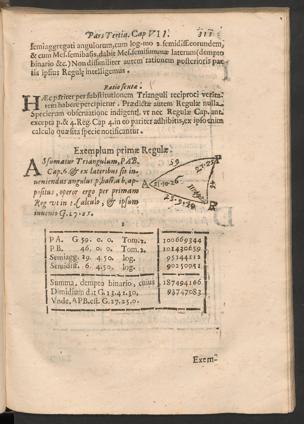 Pars Tertia. Cap VII. 311
semiaggregati angulorum, cum log-mo 2. semidiff. eorundem,
& cum Mes. semibasis, dabit Mes. semisummæ laterum (dempto
binario &c.) Non dissimiliter autem rationem posterioris par-
tis ipsius Regulæ intelligemus.
Ratio sextæ.
Hæc pariter per substitutionem Trianguli reciproci verita-
tem habere percipietur. Prædictæ autem Regulæ nulla
Specierum observatione indigent, ut nec Regulæ Cap. ant.
excepta p. & 4. Reg. Cap 4. in eo pariter adhibitis, ex ipso enim
calculo quæsita species notificantur.
Exemplum primæ Regulæ.
Assumatur Triangulum, PAB,
Cap. 6. & ex lateribus sit in-
veniendus angulus
positus, operor ergo per primam
Reg. ut in Calculo, & ipsum
invenio G. 27. 25.
P
59
27.25
A
21.10.26
46
R
PA. G 59. 0. 0. Tom. 2. 100669344
PB. 46. 0. 0. Tom. 2. 101430659
Semiagg. 19. 4. 50. log. 95144112
Semidiff. 6. 4. 50. log. 90250051
Summa, dempto binario, cuius 187494166
Dimidium dat G. 13. 42. 30. 93747083
Unde, APB. est. G. 27. 25. 0.
Exem-